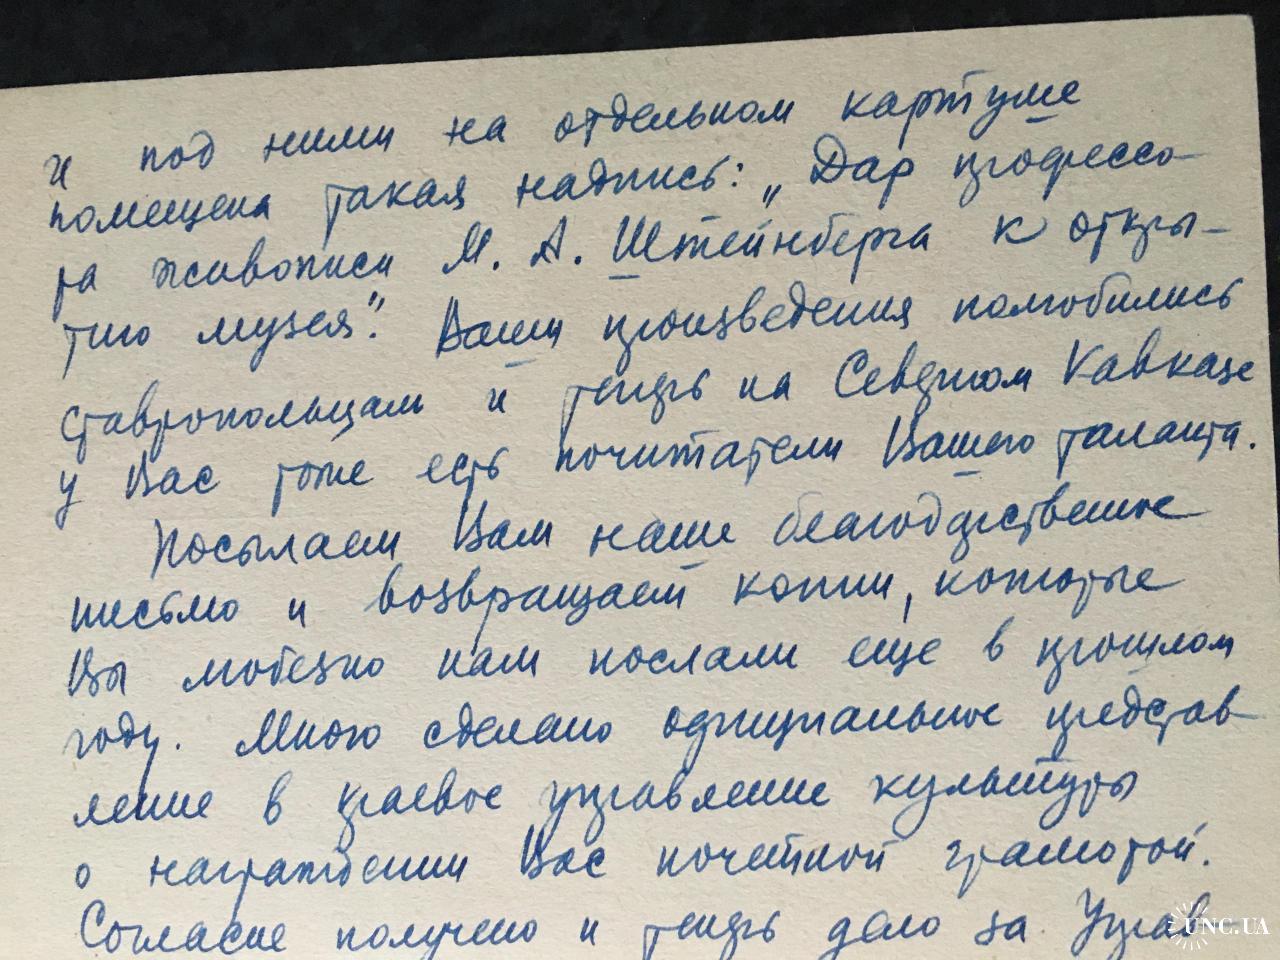 и под ними на отдельном картуше
помещена такая надпись: „Дар профессо-
ра живописи М. А. Штейнберга к откры-
тию музея". Ваши произведения полюбились
ставропольцам и теперь на Северном Кавказе
у Вас тоже есть почитатели Вашего таланта.
Посылаем Вам наше благодарственное
письмо и возвращаем копии, которые
Вы любезно нам послали еще в прошлом
году. Мною сделано официальное представ-
ление в краевое управление культуры
о награждении Вас почетной грамотой.
Согласие получено и теперь дело за Управ-
UNC.UA